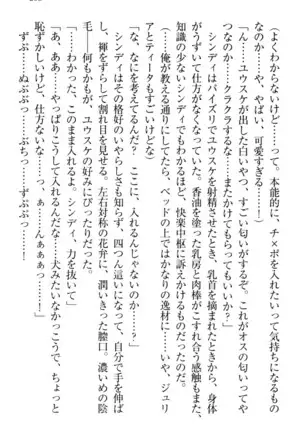 (よくわからないけど……って。本能的に、チ×ポを入れたいって気持ちになるもの
なのか……や、やばい、可愛すぎる……!)
「ん……ユウスケが出した白いやつ、すごい匂いがするぞ。これがオスの匂いってや
つなのか……クラクラするな……またかけてもらってもいいか?」
シンディはパイズリでユウスケを射精させたときから、乳首を摘まれたときから、身体
がうずいて仕方がなくなっていた。香油を塗った乳房と肉棒がこすれ合う感触もまた、
知識の少ないシンディでもわかるほど、快楽中枢に訴えかけるものがあった。
(……俺が教える通りにしてたら、ベッドの上ではかなりの逸材に……いや、ジュリ
アとティータもすごいけどな)
「な、なにを考えてるんだ? ここに、入れるんじゃないのか……?」
シンディはその格好のいやらしさも知らず、四つん這いになって、自分で手を伸ば
し、褌をずらして割れ目を見せる。左右対称の花弁に、潤いきった膣口。濃いめの陰
毛――何もかもが、ユウスケの好みにぴったりだった。
「……わかった。このまま入れるよ。シンディ、力を抜いて」
「あ、ああ……やっぱりこうして入れるんだな……犬みたいなかっこうで、ちょっと
恥ずかしいけど、仕方ないな……っ。ぁ……んぁぁぁっ……!」
ずぶ……っ。ぬぷぷっ……ぷちっ……ずぶぶっ!